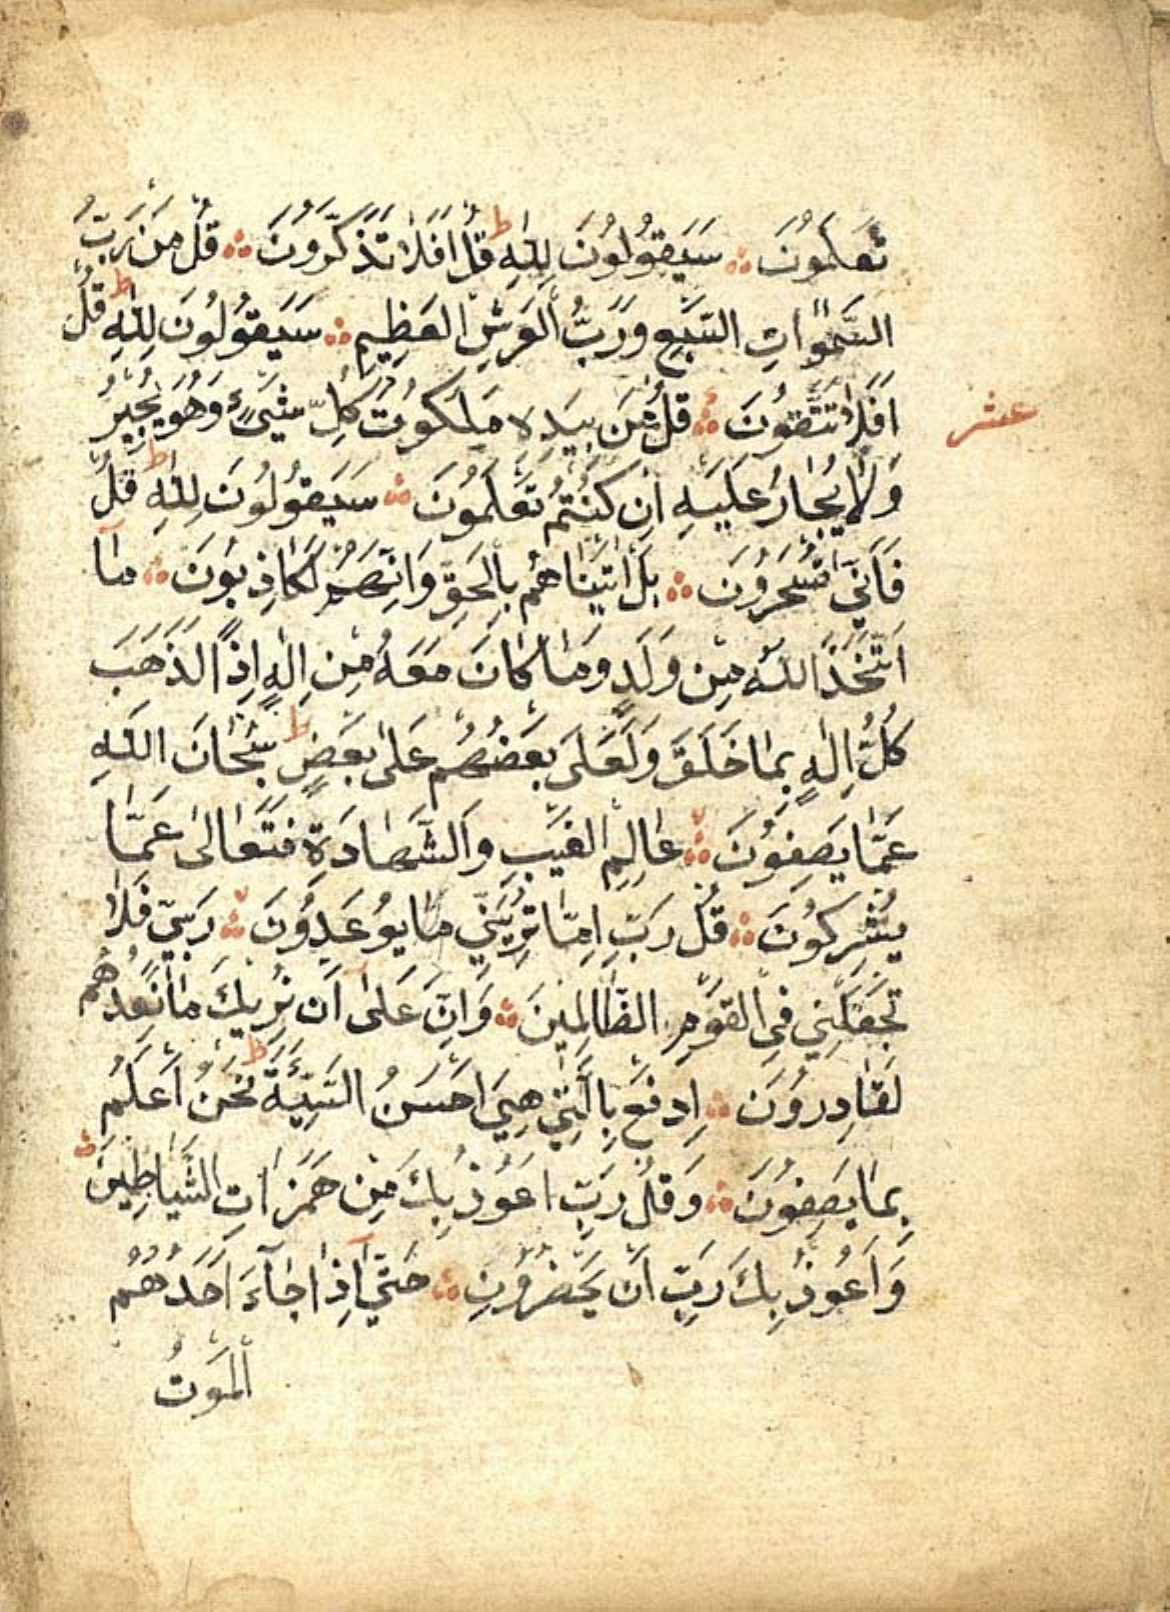 تَعْلَمُونَ ۞ سَيَقُولُونَ لِلّٰهِ ط قُلْ اَفَلَا تَذَكَّرُونَ ۞ قُلْ مَنْ رَبُّ
السَّمٰوَاتِ السَّبْعِ وَرَبُّ الْعَرْشِ الْعَظِيمِ ۞ سَيَقُولُونَ لِلّٰهِ ط قُلْ
اَفَلَا تَتَّقُونَ ۞ قُلْ مَنْ بِيَدِهِ مَلَكُوتُ كُلِّ شَيْءٍ وَهُوَ يُجِيرُ
عشر
وَلَا يُجَارُ عَلَيْهِ اِنْ كُنْتُمْ تَعْلَمُونَ ۞ سَيَقُولُونَ لِلّٰهِ ط قُلْ
فَاَنّٰى تُسْحَرُونَ ۞ بَلْ اَتَيْنَاهُمْ بِالْحَقِّ وَاِنَّهُمْ لَكَاذِبُونَ ۞ مَا
اتَّخَذَ اللّٰهُ مِنْ وَلَدٍ وَمَا كَانَ مَعَهُ مِنْ اِلٰهٍ اِذًا لَذَهَبَ
كُلُّ اِلٰهٍ بِمَا خَلَقَ وَلَعَلٰى بَعْضُهُمْ عَلٰى بَعْضٍ ط سُبْحَانَ اللّٰهِ
عَمَّا يَصِفُونَ ۞ عَالِمِ الْغَيْبِ وَالشَّهَادَةِ فَتَعَالٰى عَمَّا
يُشْرِكُونَ ۞ قُلْ رَبِّ اِمَّا تُرِيَنِّي مَا يُوعَدُونَ ۞ رَبِّ فَلَا
تَجْعَلْنِي فِي الْقَوْمِ الظَّالِمِينَ ۞ وَاِنَّا عَلٰى اَنْ نُرِيَكَ مَا نَعِدُهُمْ
لَقَادِرُونَ ۞ اِدْفَعْ بِالَّتِي هِيَ اَحْسَنُ السَّيِّئَةَ ط نَحْنُ اَعْلَمُ
بِمَا يَصِفُونَ ۞ وَقُلْ رَبِّ اَعُوذُ بِكَ مِنْ هَمَزَاتِ الشَّيَاطِينِ ۞
وَاَعُوذُ بِكَ رَبِّ اَنْ يَحْضُرُونِ ۞ حَتّٰى اِذَا جَاءَ اَحَدَهُمُ
الْمَوْتُ